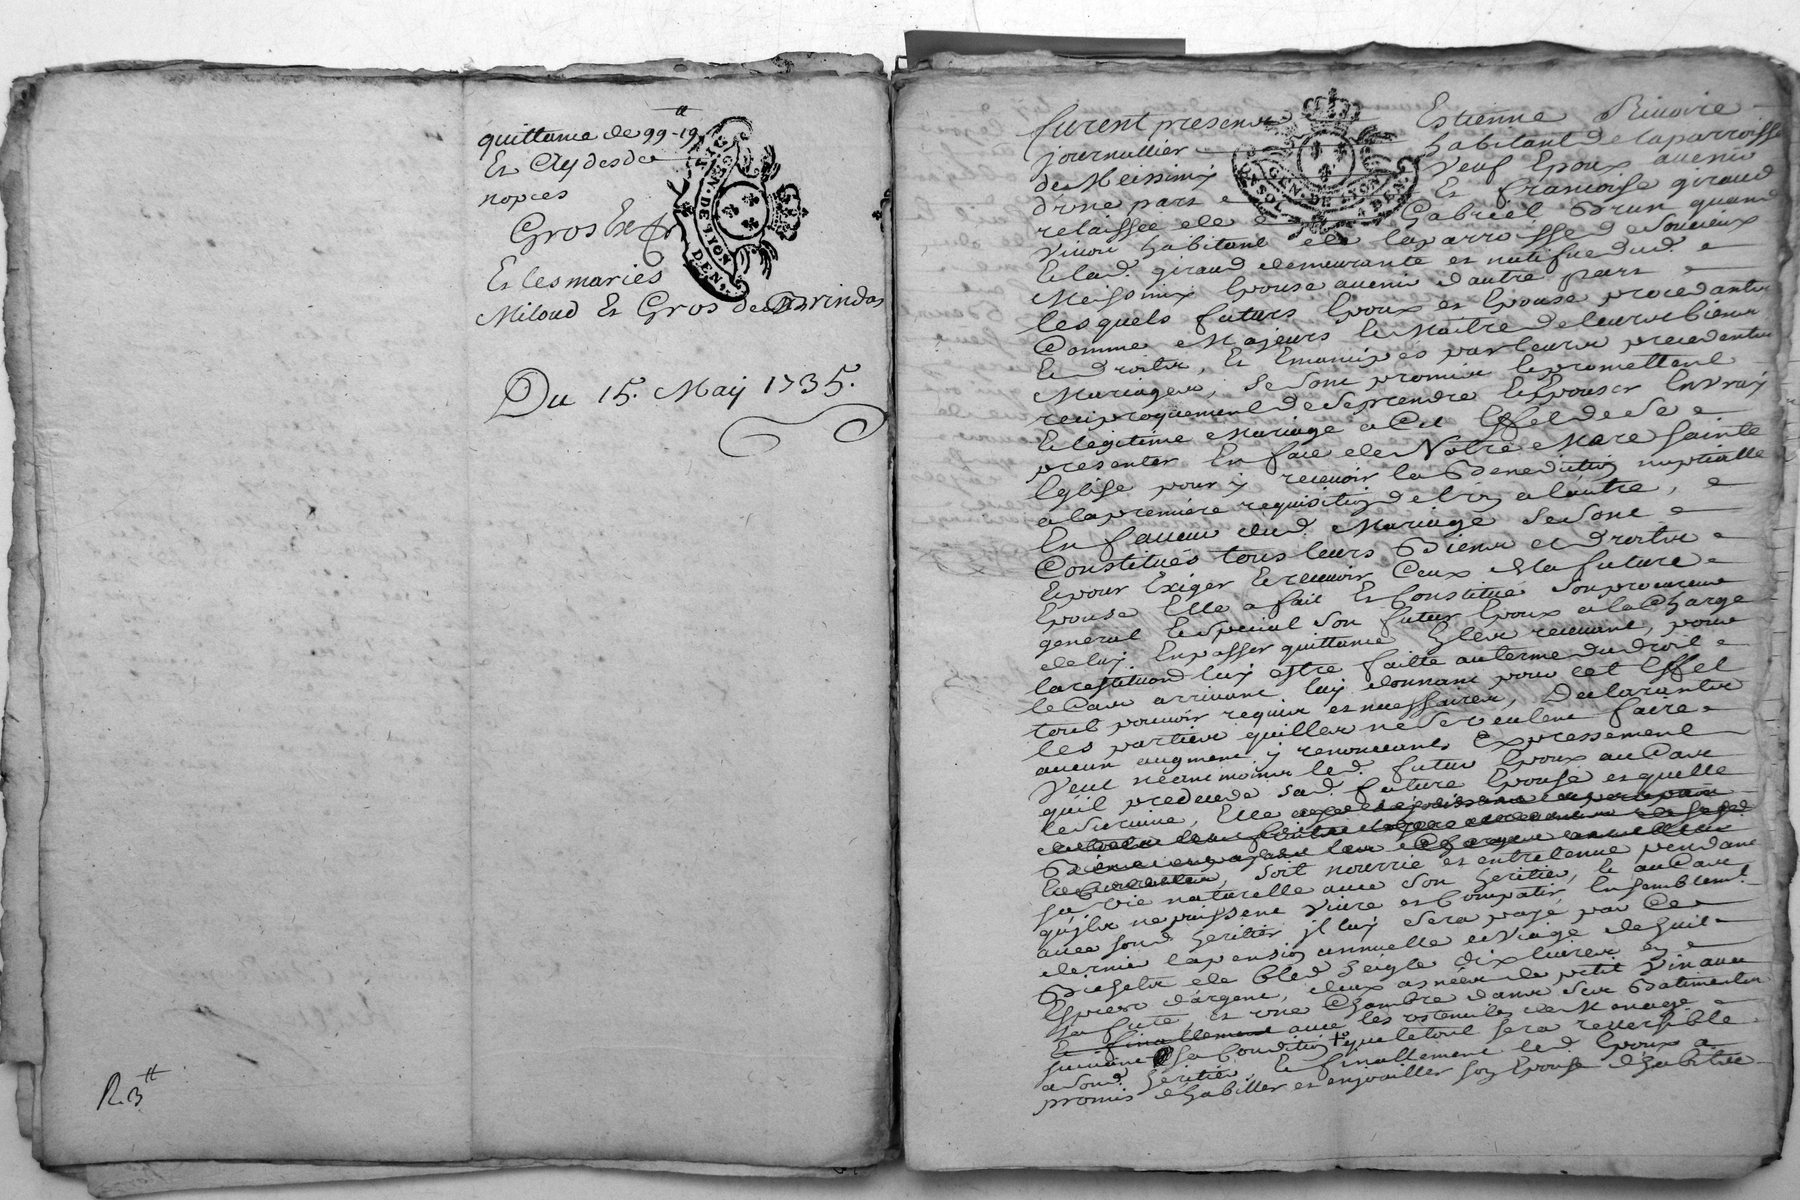 quittance de 99-19
Et Clydesde
nopces
Gros
Et les mariés
Miloud Et Gros de Brindas
Du 15. Maÿ 1735.
R. 3 tt
GEN. DE LYON
DEN.
furent presents Estienne Riuoire
journallier habitant de la parroisse
de Messimy veuf Epoux auenir
d'une part Et francoise giraud
relaissée de Gabriel Brun quand
viuoit habitant de la parroisse de Soucieux
Et lad. giraud demeurante et natifue dud.
Messimix Epouse auenir d'autre part
lesquels futurs Epoux et Epouse procedants
Comme Majeurs Et Maitre de leurs biens
Et droits, Et Emancipés par leurs precedents
Mariages, se sont promis Et promettent
reciproquement de se prendre Et Epouser En vray
Et legitime Mariage a Cet Effet de se
presenter En face de Notre Mere Sainte
Eglise pour y receuoir la Benediction nuptialle
a la premiere requisition de l'un a l'autre,
En faueur dud. Mariage se sont
Constitués tous leurs Biens et droits
Et pour Exiger Et receuoir Ceux de la future
Epouse Elle a fait Et Constitué son procureur
general Et special son futur Epoux a la Charge
de luy En passer quittance Es les receuant, pour
la restitution luy estre faitte au terme du droit
le Cas arriuant, luy donnant pour cet Effet
tout pouuoir requis et necessaires, Declarants
les parties quelles ne se veulent faire
aucun augment y renonceants Expressement
Veut neantmoins led. futur Epoux au Cas
quil predecede sad. future Epouse et quelle
le suruiue, Elle
soit nourrie et entretenue pendant
sa vie naturelle auec son heritier, Et au Cas
quils ne puissent viure et Compatir Ensemblemt.
auec sond. heritier il luy sera payé par Ce
dernier la pension annuelle et Viage de huit
Bichets de bled seigle dix liures en
Espece d'argent, deux asnées de petit vin auec
sa fute, et une Chambre dans ses Batiments
Et finallement auec les ustenciles de Menage
suiuant sa Condition + que le tout sera reuersible
a sond. heritier, Et finallement led. Epoux a
promis d'habiller et enjoailler son Epouse d'habits